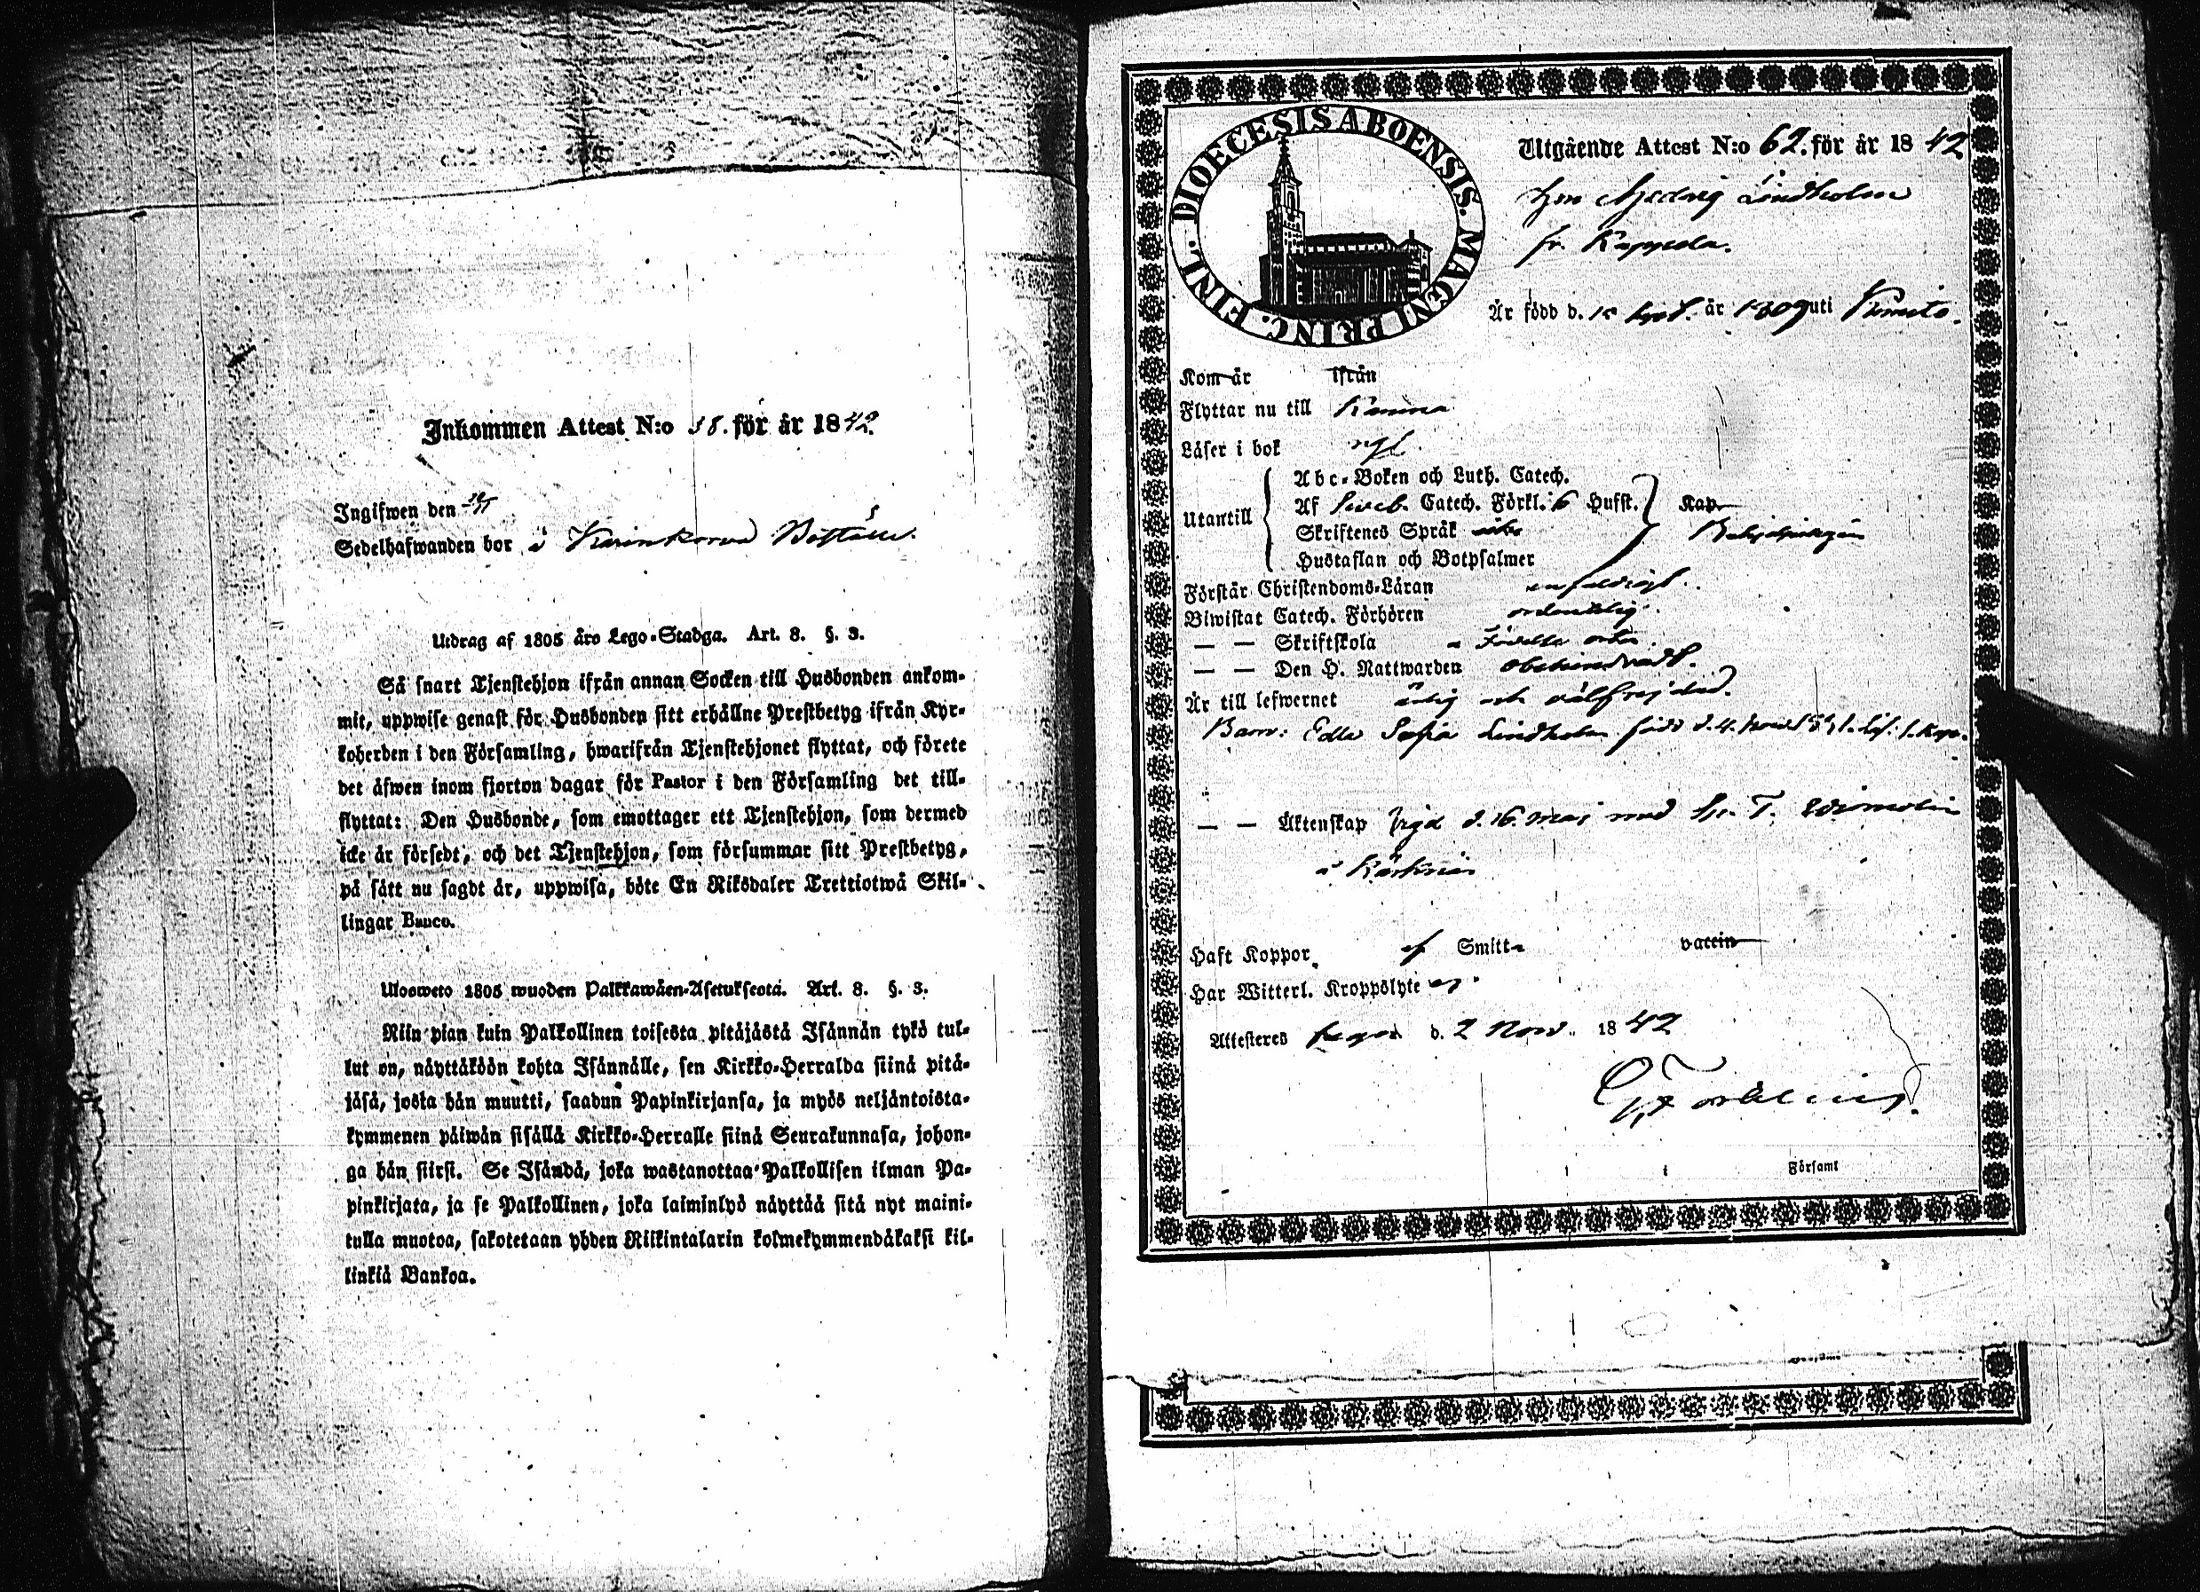 Inkommen Attest N:o 58. för år 1842.
Ingifwen den
Sedelhafwanden bor i
Utdrag af 1805 års Lego-Stadga. Art. 8. §. 3.
Så snart Tjenstehjon ifrån annan Socken till Husbonden ankom-
mit, uppwise genast för Husbonden sitt erhållne Prestbetyg ifrån Kyr-
koherden i den Församling, hwarifrån Tjenstehjonet flyttat, och förete
det äfwen inom fjorton dagar för Pastor i den Församling det till-
flyttat: Den Husbonde, som emottager ett Tjenstehjon, som dermed
icke är försedt, och det Tjenstehjon, som försummar sitt Prestbetyg,
på sätt nu sagdt är, uppwisa, böte En Riksdaler Trettiotwå Skil-
lingar Banco.
Ulosweto 1805 wuoden Palkkawäen-Asetuksesta. Art. 8. §. 3.
Niin pian kuin Palkollinen toisesta pitäjästä Isännän tykö tul-
lut on, näyttäköön kohta Isännälle, sen Kirkko-Herralda siinä pitä-
jäsä, josta hän muutti, saadun Papinkirjansa, ja myös neljäntoista-
kymmenen päiwän sisällä Kirkko-Herralle siinä Seurakunnasa, johon-
ga hän siirsi. Se Isändä, joka wastanottaa Palkollisen ilman Pa-
pinkirjata, ja se Palkollinen, joka laiminlyö näyttää sitä nyt maini-
tulla muotoa, sakotetaan yhden Riikintalarin kolmekymmendäkaksi kil-
linkiä Bankoa.
DIOECESIS ABOENSIS. MAGNI PRINC. FINL.
Utgående Attest N:o 62. för år 1842
Hedvig Lindholm
fr.
Är född d. 15 år 1809 uti Kimito.
Kom år ifrån
Flyttar nu till
Läser i bok
Abc-Boken och Luth. Catech.
Utantill Af Sweb. Catech. Förkl. 6 Hufst. Kap
Skriftenes Språk
Hustaflan och Botpsalmer
Förstår Christendoms-Läran enfaldigt.
Biwistat Catech. Förhören ordentelig.
— — Skriftskola
— — Den H. Nattwarden obehindradt.
Är till lefwernet ärlig och välfrejdad.
Barn: Edla Sofia Lindholm född d. 4. Nov.
— — Äktenskap vigd d. 16. Maj med
i
Haft Koppor ej Smitt- vaccin
Har Witterl. Kroppslyte ej.
Attesteres d. 2 Nov. 1842
Församl